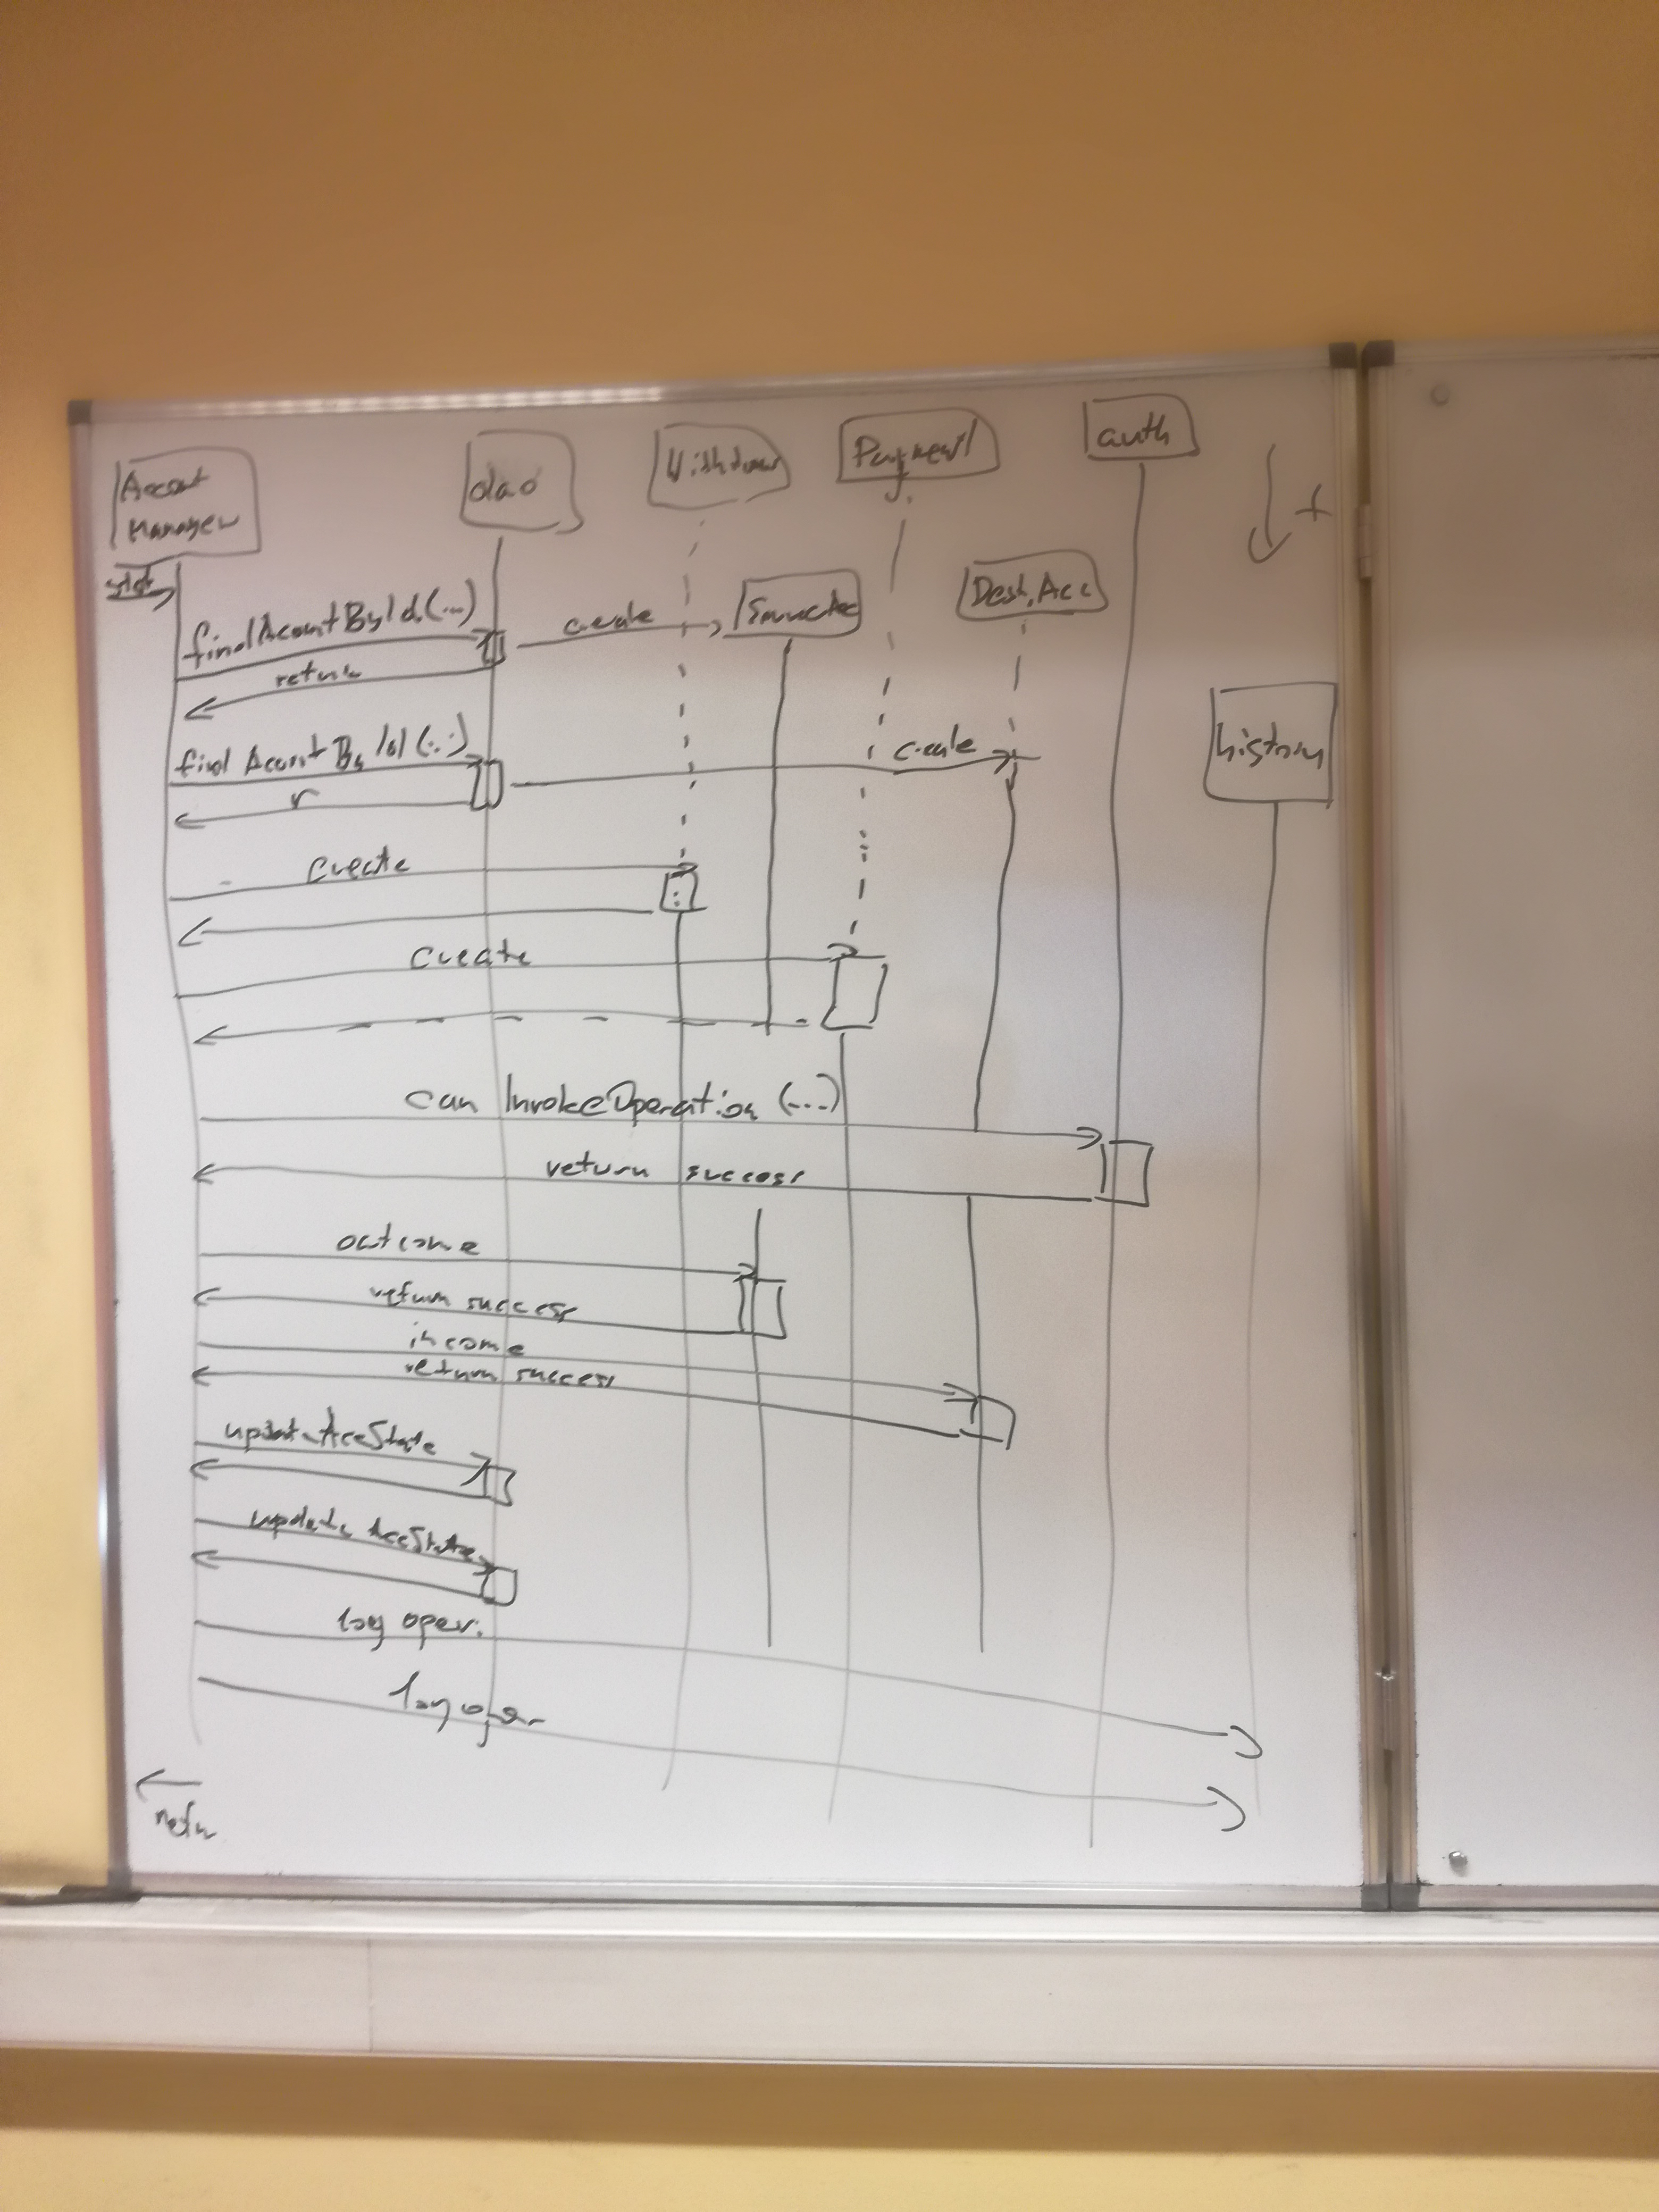 Accont
Manager
dao
Withdraw
Payment
auth
t
start
findAcountById(...)
create
SourceAcc
Dest.Acc
return
history
find AcountById(...)
create
r
create
create
can InvokeOperation (...)
return success
outcome
return success
income
return success
update AccState
update AccState
log oper.
log oper
return